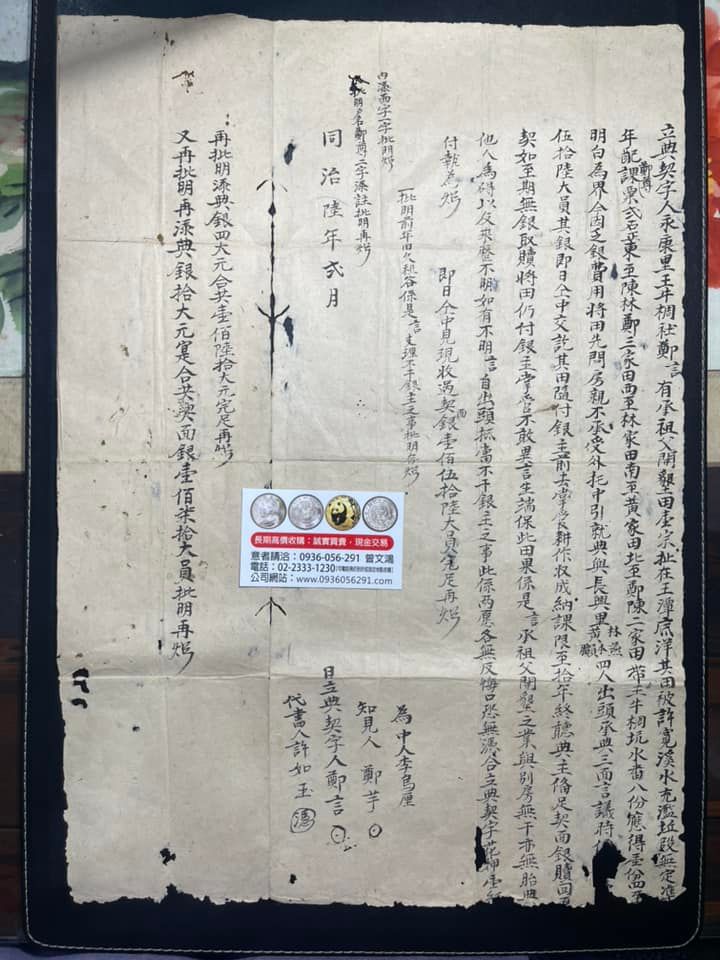 立典契字人永康里王牛椆社鄭言有承祖父開墾田壹宗址在王潭㡳洋其田被許寬溪水充濫坵段無定準
年配課粟弍石正東至陳林鄭三家田西至林家田南至黃家田北至鄭陳二家田帶王牛椆坑水畓八份應得壹份四至
明白為界今因乏銀費用將田先問房親不承受外托中引就典與長興里林燕黃四人出頭承典三面言議時
伍拾陸大員其銀即日仝中交訖其田隨付銀主前去掌管耕作收成納課限至拾年終聽典主備足契面銀贖回
契如至期無銀取贖將田仍付銀主掌管不敢異言生端保此田果係是言承祖父開墾之業與別房無干亦無胎典
他人為碍以及來歷不明如有不明言自出頭抵當不干銀主之事此係两愿各無反悔口恐無憑合立典契字花押壹
付執為炤
即日仝中見現收過契面銀壹佰伍拾陸大員完足再炤
一批明前年旧欠租谷係是言支理不干銀主之事批明再炤
内添面字一字批明炤
批明名鄭二字添註批明再炤
同治陸年弍月
為中人李烏厘
知見人鄭芋
日立典契字人鄭言
代書人許如玉
再批明添典銀四大元合共壹佰陸拾大元完足再炤
又再批明再添典銀拾大元寔合共契面銀壹佰柒拾大員批明再炤
長期高價收購：誠實買賣，現金交易
意者請洽：0936-056-291 曾文鴻
電話：02-2333-1230
公司網站：www.0936056291.com